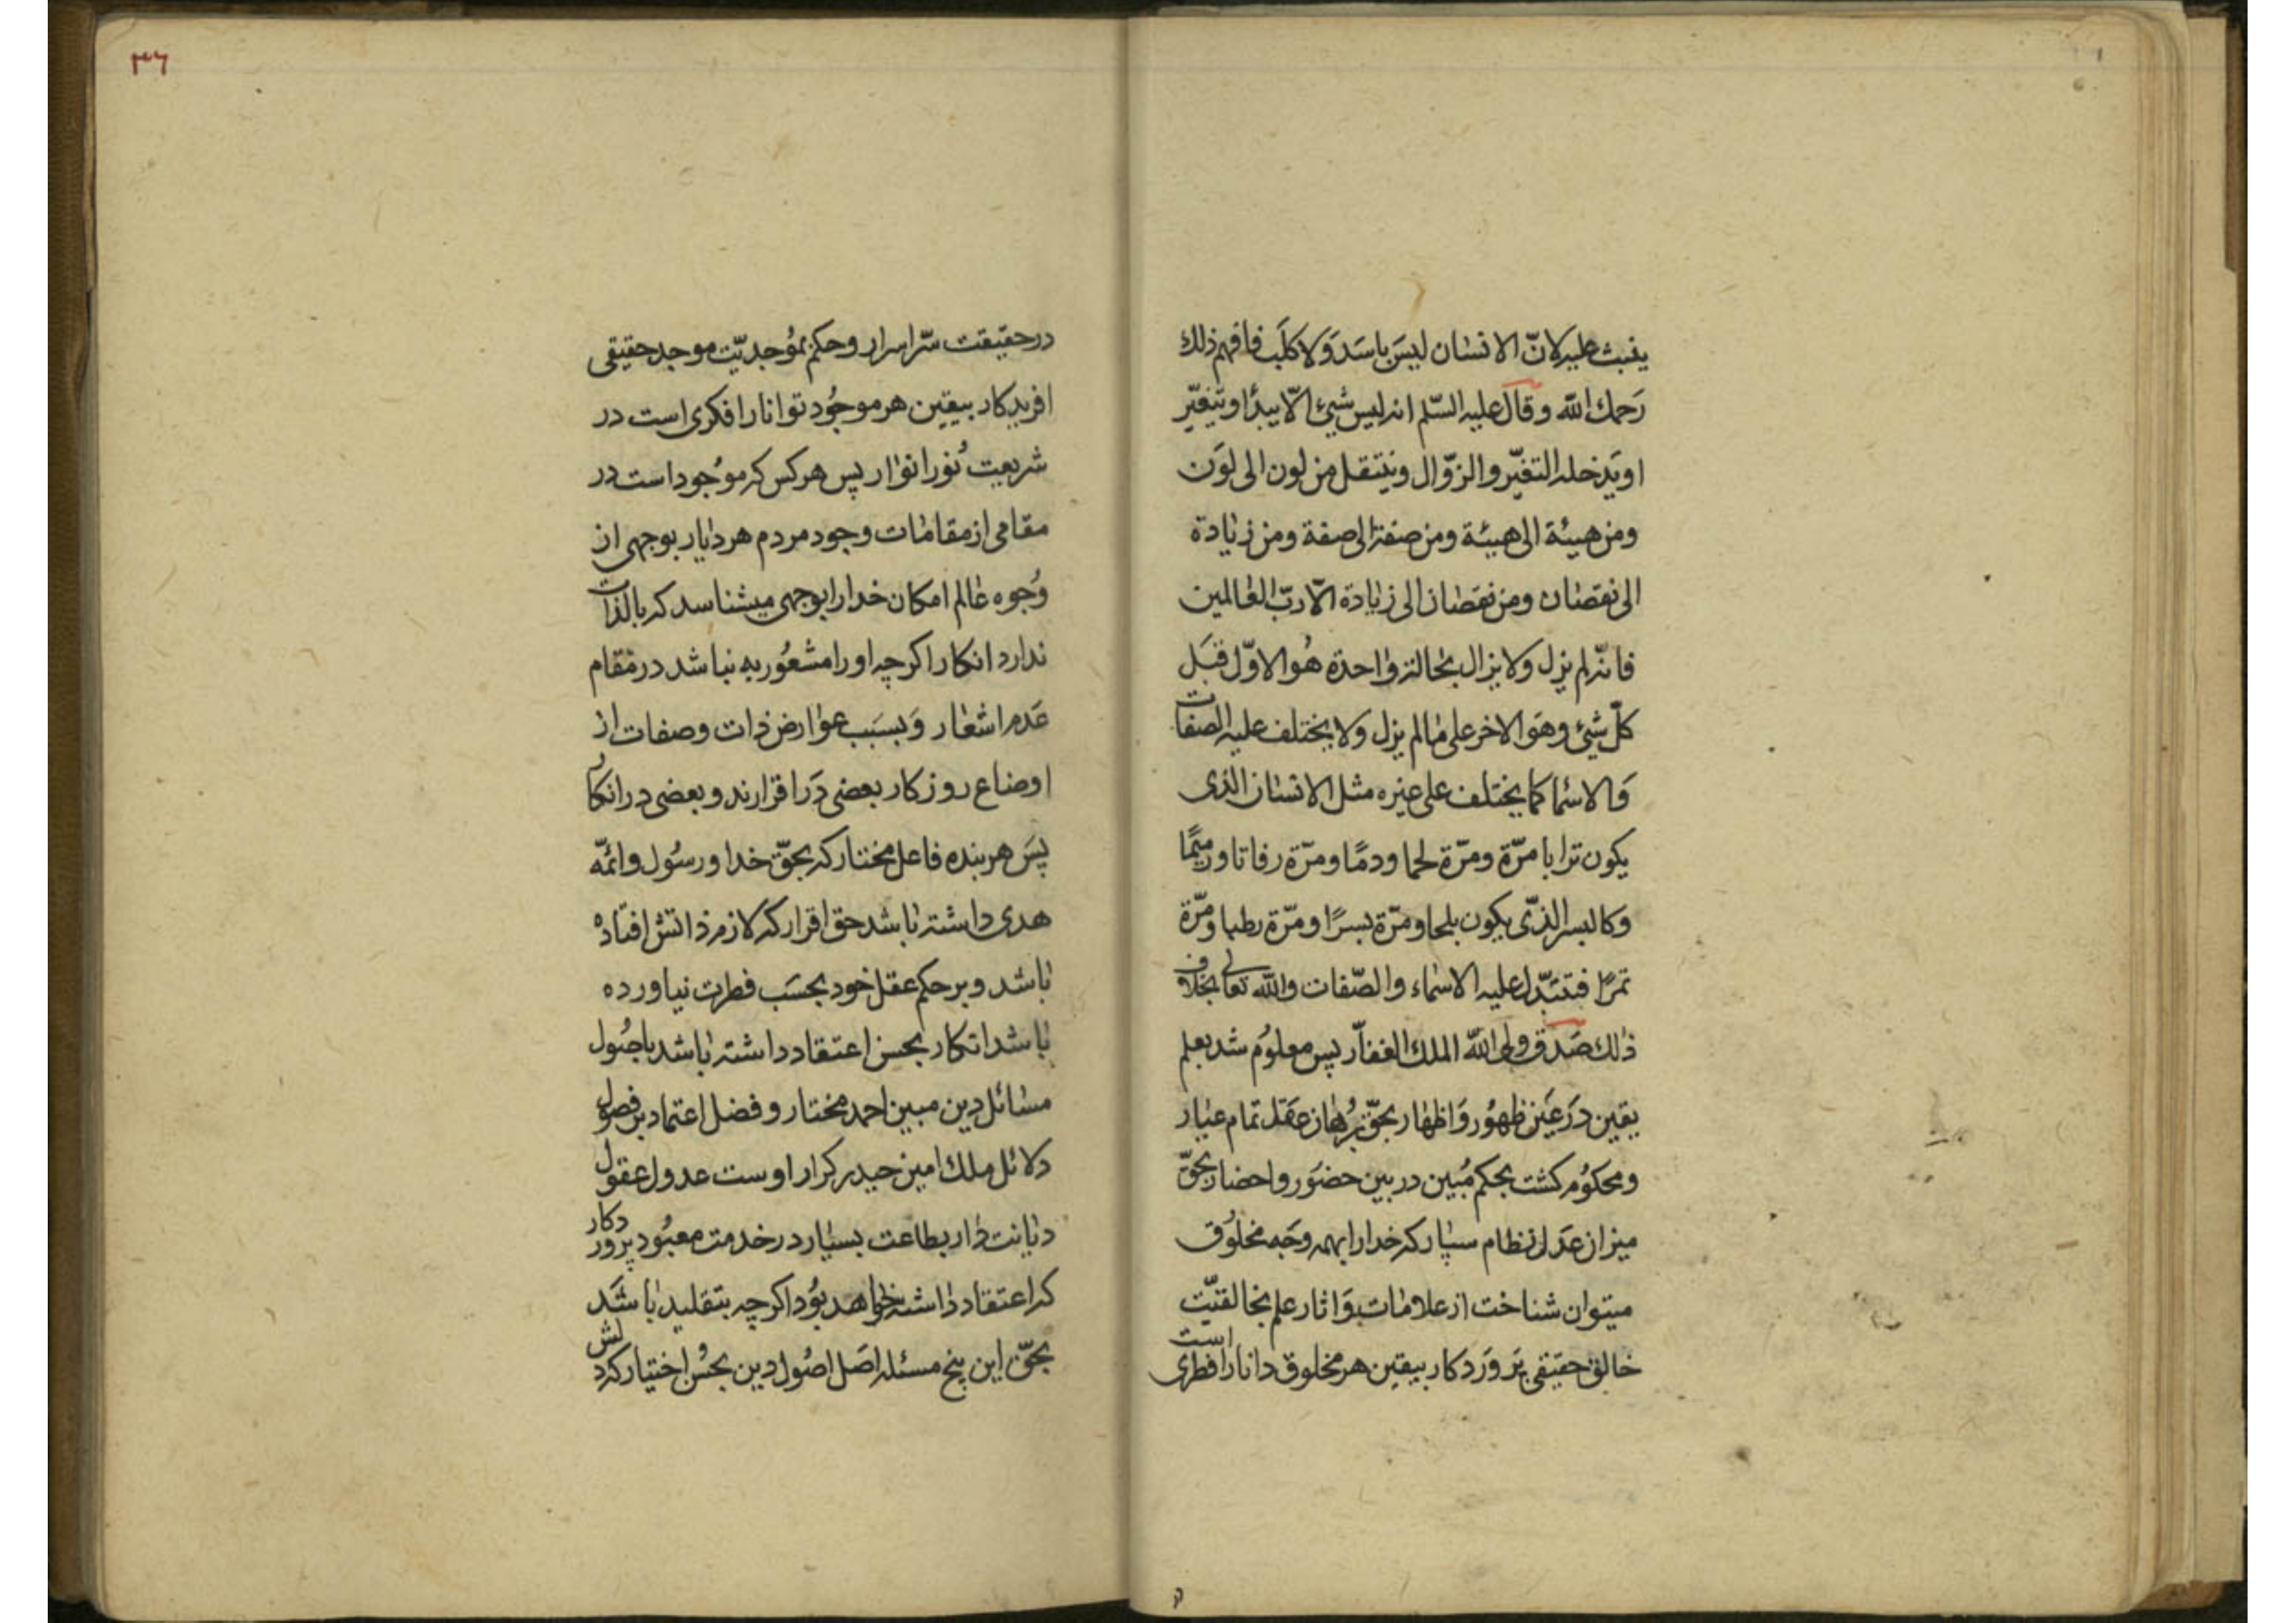 یثبت علیه لانّ الانسان لیسَ باسَد وَلا کلَب فافهم ذلك
رَحمك الله وقال علیه السّلم انه لیس شئ الّا یبدأ او یتغیّر
او یَدخله التغیّر والزّوال وینتقل من لون الی لوَن
ومن هیئة الی هیئة ومن صفة الی صفة ومن زیادة
الی نقصان ومن نقصان الی زیادة الّا ربّ العالمین
فانّه لم یزل ولا یزال بحالة واحدة هُو الاوّل قبَل
کلّ شئ وهَو الاخر علی مالم یزل ولا یختلف علیه الصفات
وَالاسما کما یختلف علی غیره مثل الانسان الذی
یکون ترابا مرّة ومرّة لحما ودمًا ومرّة رفاتا ورمیمًا
وَکالبسر الذّی یکون بلحا ومرّة بسرًا ومرّة رطبا ومَرّة
تمرًا فتتبّدل علیه الاسماء والصّفات والله تعالی بخلاف
ذالك صَدق ولی الله الملك الغفاّر پس معلوُم شد بعلم
یقین دَر عَین ظهوُر وَاظهار بحقّ بُرهان عَقل تمام عیار
ومحکوُم کشت بحکم مُبین در بین حضوَر واحضار بحقّ
میزان عَدل نظام سپار که خدا را بهمه وجَه مخلوُق
میتوان شناخت از علامات وَاثار علم بخالقیّت
خالق حقیقی پَروَردکار بیقین هر مخلوق دانا را فطری است
۳۶
در حقیقت سّر اسرار و حکم بموُجدیّت موجد حقیقی
افریدکار بیقین هر موجوُد توانا را فکری است در
شریعت نُور انوار پس هر کس که موُجود است در
مقامی از مقامات وجود مردم هر دیار بوجهی از
وُجوه عالم امکان خدا را بوجهی میشناسد که بالذات
ندارد انکار اکر چه او را مشعوُر به نباشد در مقام
عَدم اشعار وَ بسَبب عوارض ذات وصفات از
اوضاع روزکار بعضی دَر اقرارند و بعضی در انکار
پسَ هر بنده فاعل مختار که بحقّ خدا و رسُول و ائمّه
هدی داشته باشد حق اقرار که لازم ذاتش افتاده
باشد و بر حکم عقل خود بحسَب فطرت نیاورده
باشد انکار بحسن اعتقاد داشته باشد باصُول
مسائل دین مبین احمد مختار و فضل اعتماد بر فصول
دلائل ملك امین حیدر کرار اوست عدول عقول
دیانت دار بطاعت بسیار در خدمت معبُود پروردکار
که اعتقاد داشته خواهد بوُد اکر چه بتقلید باشَد
بحقّ این پنج مسئله اصَل اصُول دین بحسُن اختیار کردلش